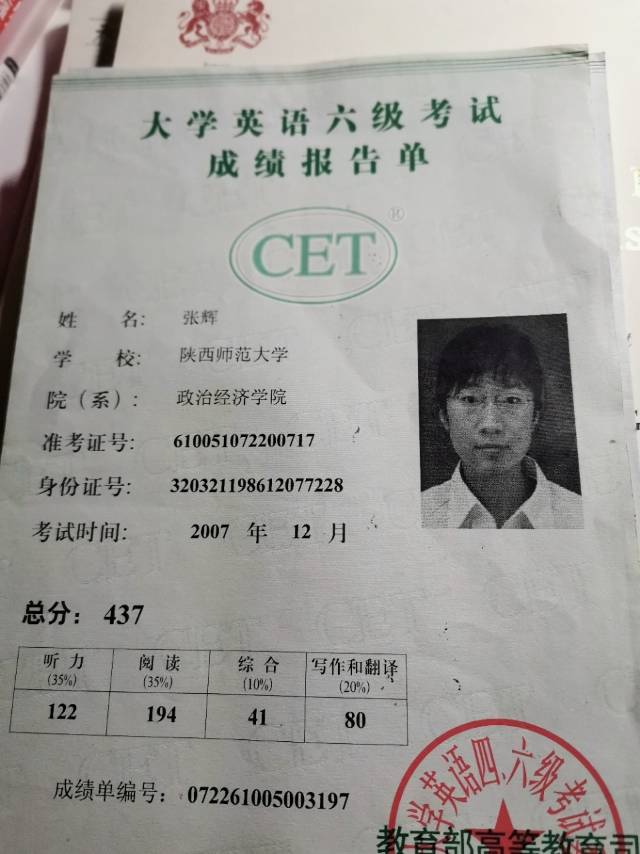 大学英语六级考试
成绩报告单
CET®
姓 名: 张辉
学 校: 陕西师范大学
院(系): 政治经济学院
准考证号: 610051072200717
身份证号: 320321198612077228
考试时间: 2007 年 12 月
总分: 437
听力 阅读 综合 写作和翻译
(35%) (35%) (10%) (20%)
122 194 41 80
成绩单编号: 072261005003197
学英语四、六级考试
教育部高等教育司